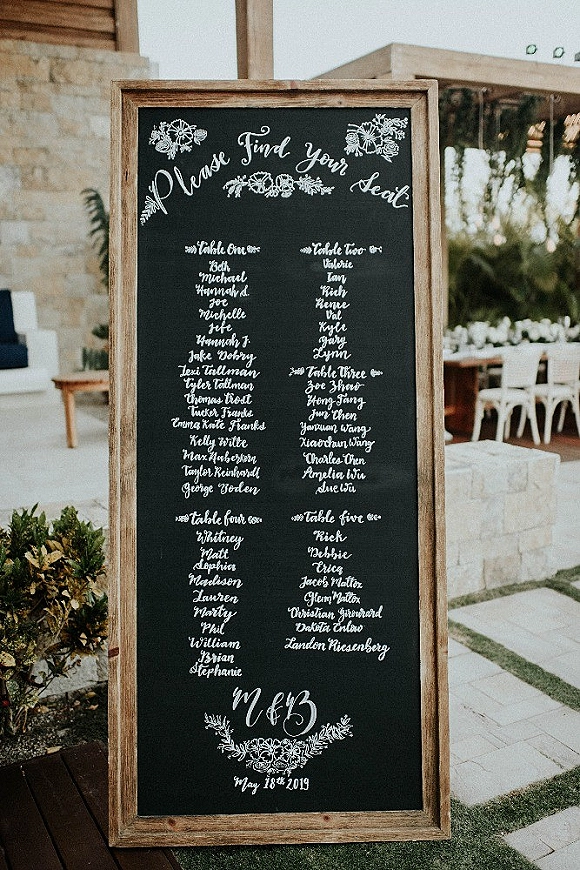 Please Find Your Seat
Table One
Beth
Michael
Hannah S.
Joe
Michelle
Jeff
Hannah J.
Jake Dobry
Lexi Tallman
Tyler Tallman
Thomas Trost
Tucker Franks
Emma Kate Franks
Kelly Witte
Max Haberkorn
Taylor Reinhardt
George Yoden
Table Two
Valerie
Ian
Rich
Renee
Val
Kyle
Gary
Lynn
Table Three
Zoe Zhao
Hong Jang
Jun Chen
Yanxuan Wang
Xiaochun Wang
Charles Chen
Amelia Wu
Sue Wu
Table Four
Whitney
Matt
Sophia
Madison
Lauren
Marty
Phil
William
Brian
Stephanie
Table Five
Rick
Debbie
Erica
Jacob Mattox
Glenn Mattox
Christian Girouard
Dakota Enlow
Landon Riesenberg
M & B
May 18th 2019